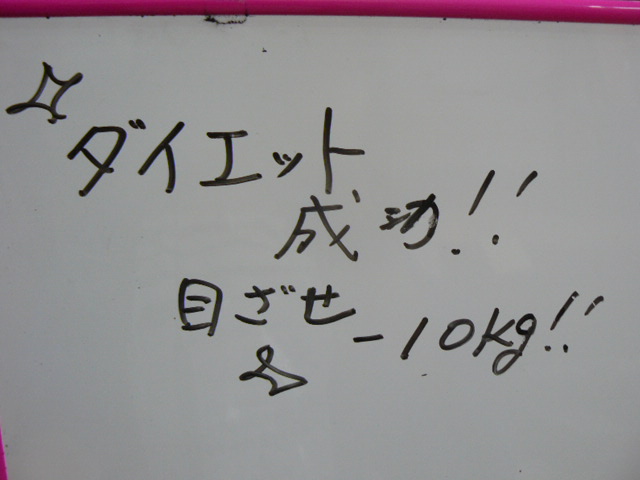 ダイエット
成功!!
目ざせ -10kg!!